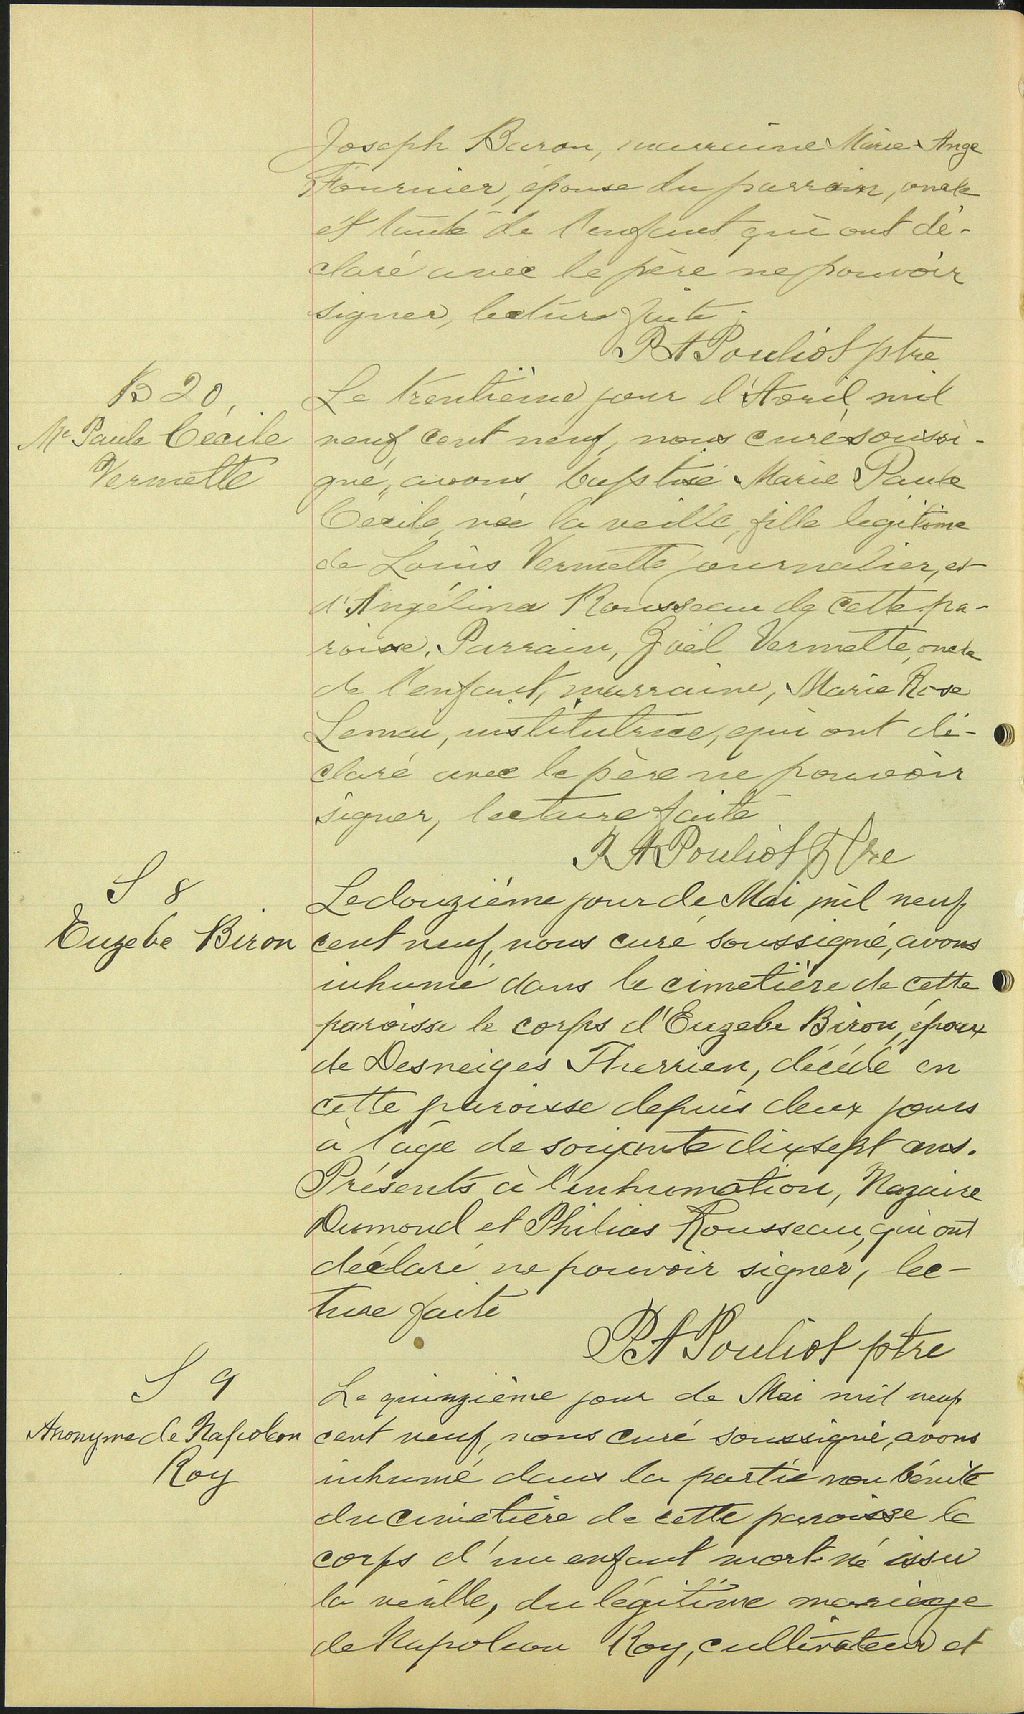 Joseph Baron, marraine Marie Ange
Fournier, épouse du parrain, oncle
et tante de l'enfant qui ont dé-
claré avec le père ne pouvoir
signer, lecture faite.
P A Pouliot ptre
B 20
Me Paule Cécile
Vermette
Le trentième jour d'Avril, mil
neuf cent neuf, nous curé soussi-
gné, avons baptisé Marie Paule
Cecile, née la veille, fille légitime
de Louis Vermette journalier, et
d'Angélina Rousseau de cette pa-
roisse. Parrain, Joël Vermette, oncle
de l'enfant, marraine, Marie Rose
Lemai, institutrice, qui ont dé-
claré avec le père ne pouvoir
signer, lecture faite
P A Pouliot ptre
S 8
Euzebe Biron
Le douzième jour de Mai, mil neuf
cent neuf, nous curé soussigné, avons
inhumé dans le cimetière de cette
paroisse le corps d'Euzebe Biron, époux
de Desneiges Therrien, décédé en
cette paroisse depuis deux jours
à l'âge de soixante dix sept ans.
Présents à l'inhumation, Nazaire
Dumond et Philias Rousseau, qui ont
déclaré ne pouvoir signer, lec-
ture faite
P A Pouliot ptre
S 9
Anonyme de Napoléon
Roy
Le quinzième jour de Mai mil neuf
cent neuf, nous curé soussigné, avons
inhumé dans la partie non bénite
du cimetière de cette paroisse le
corps d'un enfant mort-né issu
la veille, du légitime mariage
de Napoléon Roy, cultivateur et